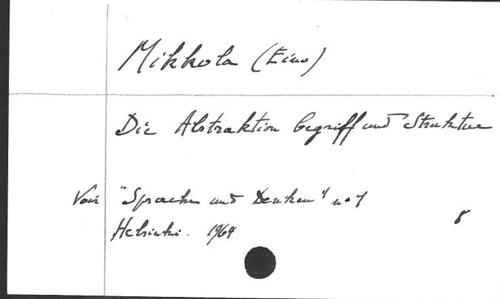 Mikkola (Eino)
Die Abstraktion begriff und Struktur
Voir "Sprache und Denken" n°1
Helsinki. 1964
8